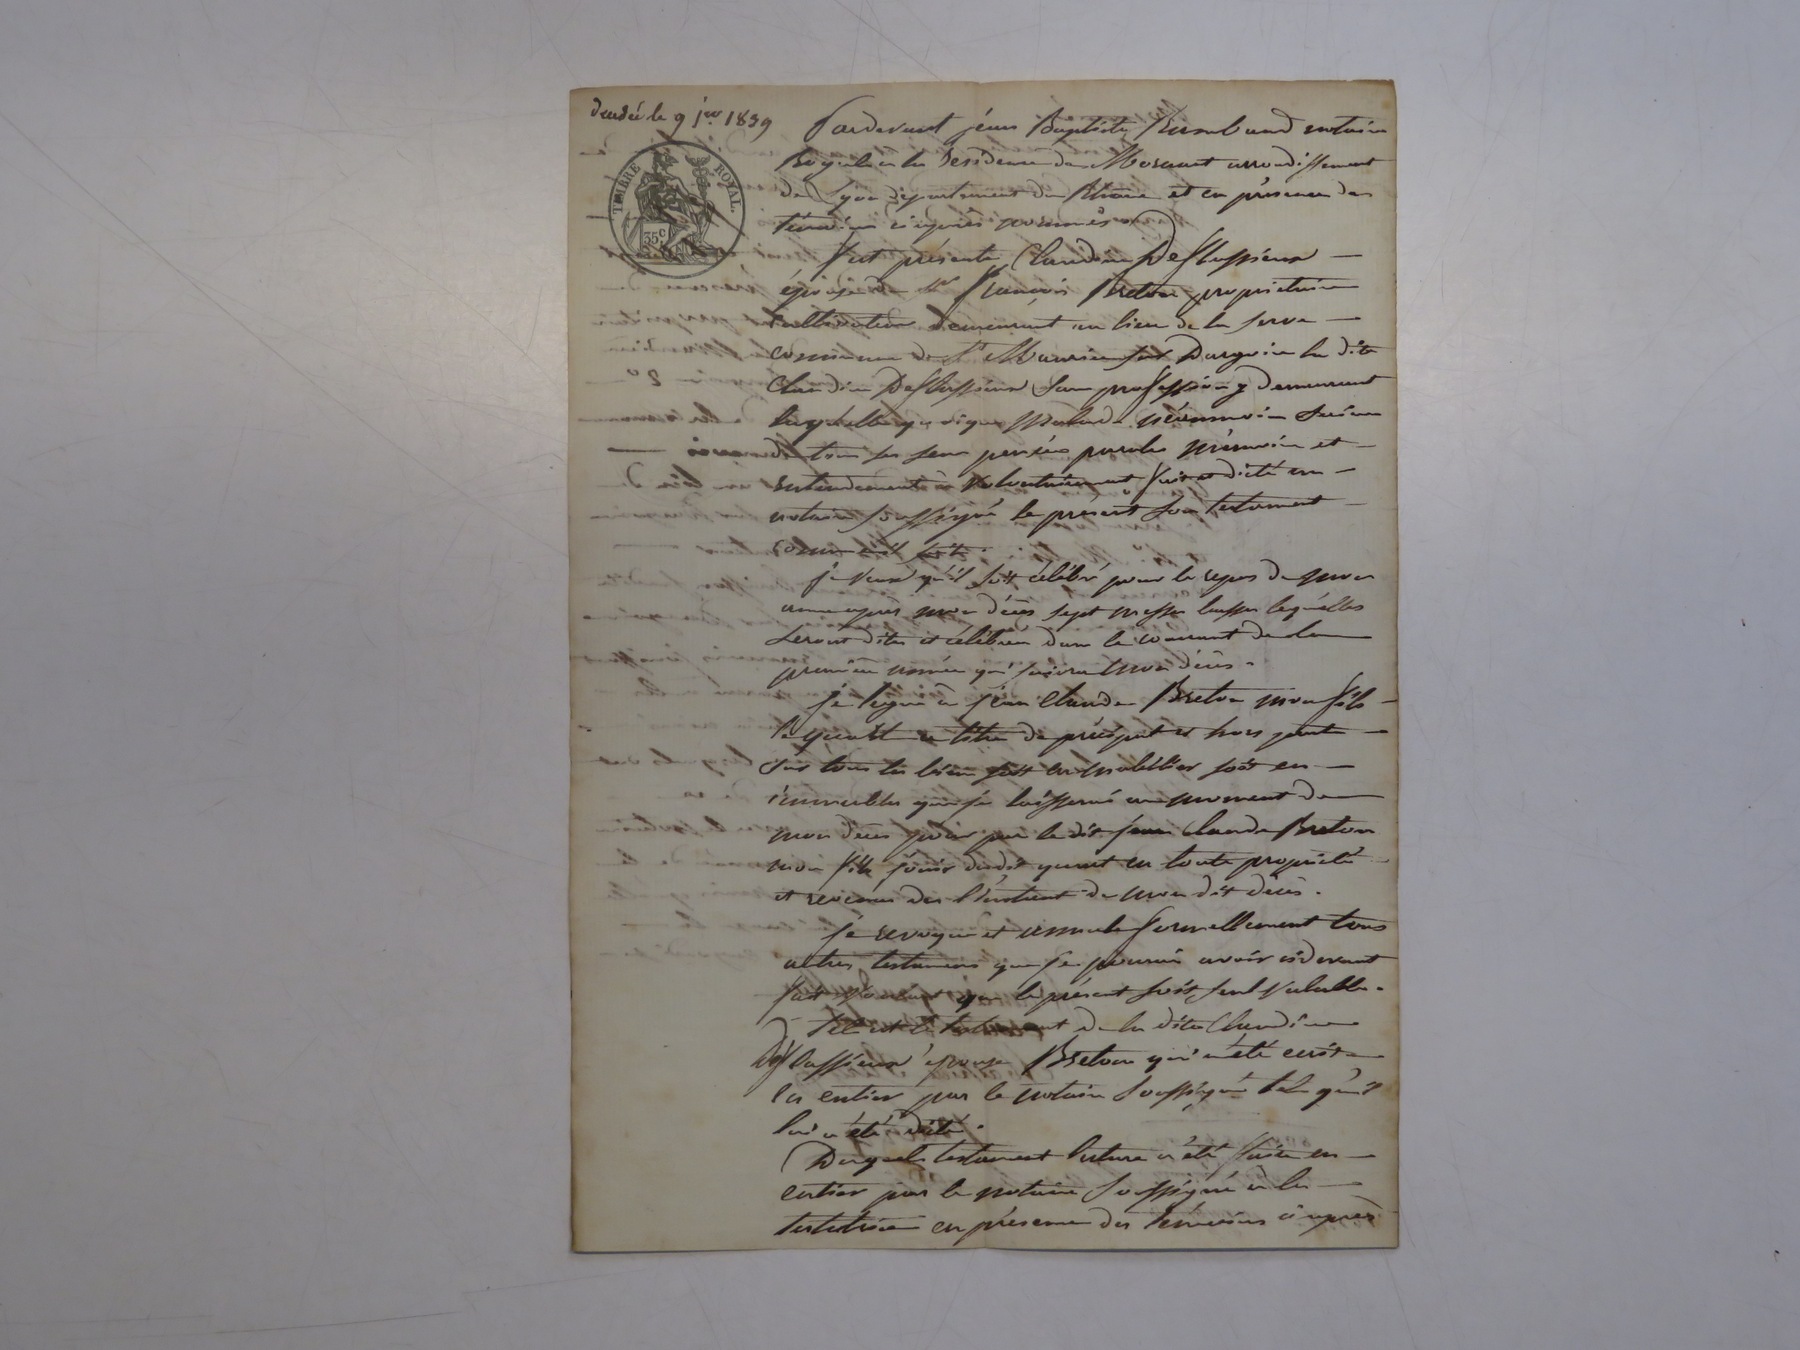 décédée le 9 jer 1839
TIMBRE ROYAL.
35 c
Pardevant jéan Baptiste notaire
Royal à la Residence de Mornant arrondissement
de Lyon département du Rhone et en présence des
témoins ci après nommés
Fut présente Claudine Deflassieux
épouze de Sr François Breton propriétaire
cultivateur demeurant au lieu de la
commune de St Maurice sur Dargoire la dite
Claudine Deflassieux sans profession y demeurant
laquelle quoique Malade néanmoins saine
dans ses sens pensées paroles mémoire et
entendement à volontairement fait et dicté au
notaire soussigné le présent son testament
comme il suit.
je veux qu'il soit célébré pour le repos de mon
ame après mon décès sept messes basses lesquelles
seront dites et célébrées dans le courant de la
première année qui suivra mon décès.
je lègue à jéan Claude Breton mon fils
le quart à titre de préciput et hors part
sur tous les biens soit en mobilier soit en
immeubles que je laisserai au moment de
mon décès pour par le dit jean Claude Breton
mon fils jouir dudit quart en toute propriété
et revenus dès l'instant de mon dit décès.
je revoque et annule formellement tous
autres testamens que je pourais avoir cidevant
fait voulant que le présent soit seul valable.
Tel est le testament de la dite Claudine
Déflassieux épouze Breton qui a été écrit
en entier par le notaire soussigné tel qu'il
lui a été dicté.
Duquel testament lecture a été faite en
entier par le notaire soussigné à la
testatrice en présence des témoins ci après